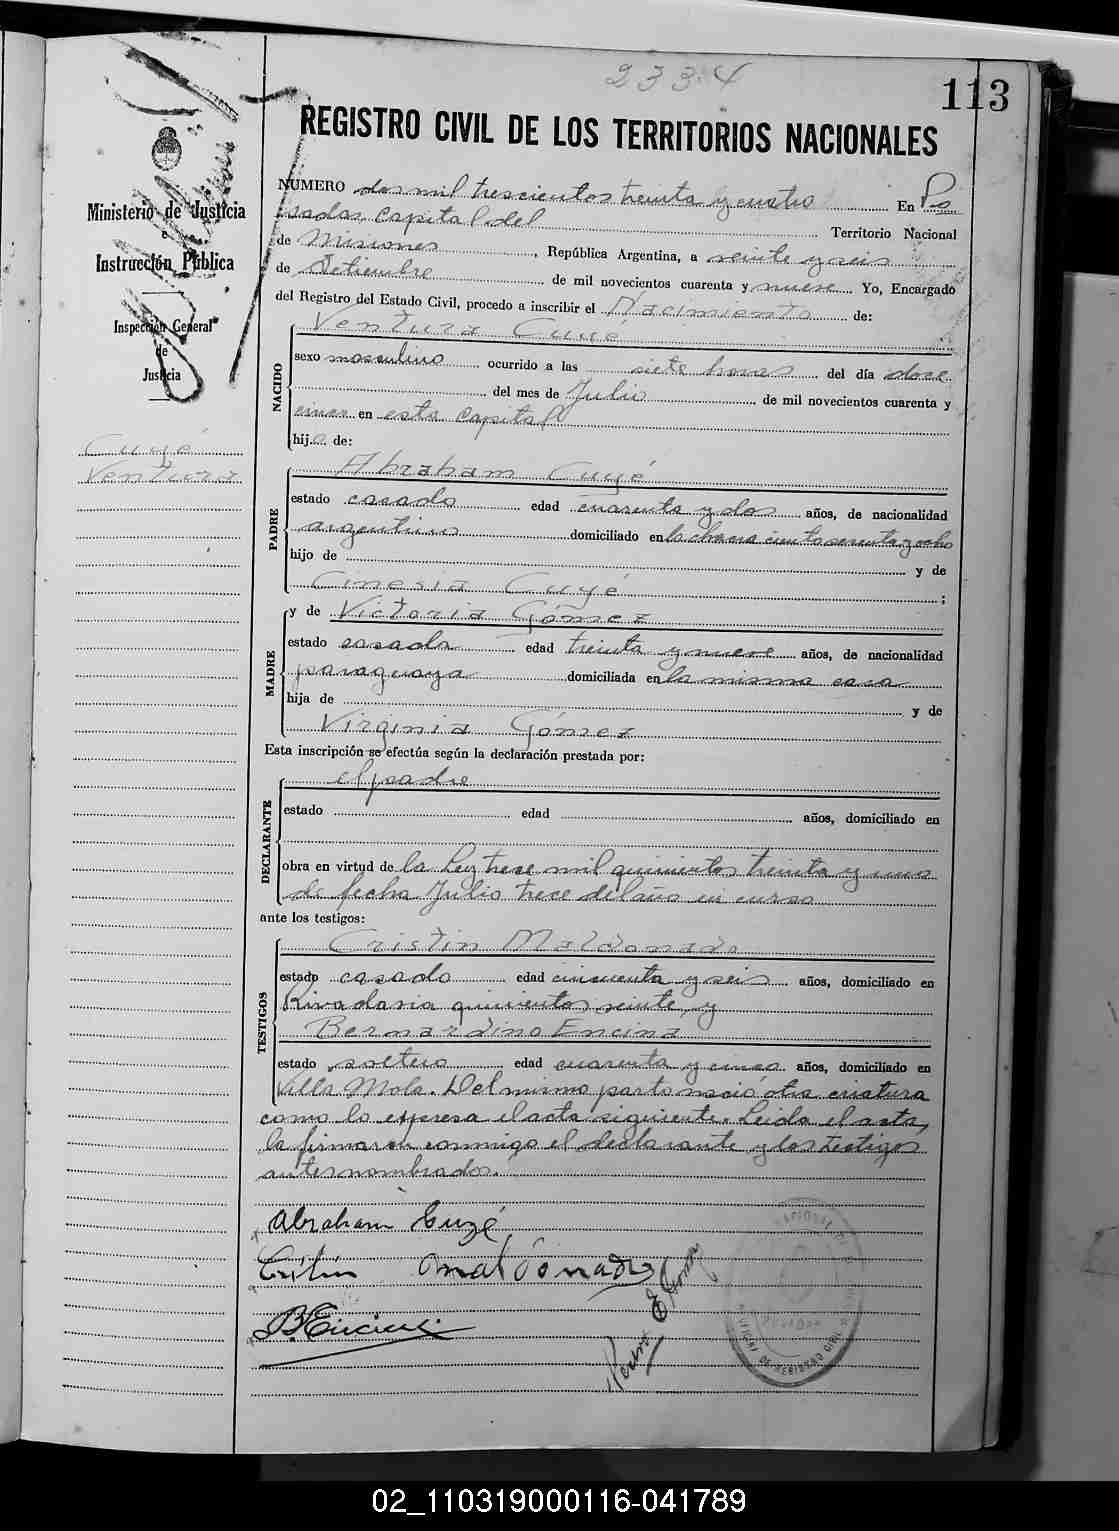 2334
113
REGISTRO CIVIL DE LOS TERRITORIOS NACIONALES
Ministerio de Justicia
e
Instrucción Pública
Inspección General
de
Justicia
Cuyé
Ventura
NUMERO dos mil trescientos treinta y cuatro En Po
sadas, capital del Territorio Nacional
de Misiones, República Argentina, a veinte y seis
de Setiembre de mil novecientos cuarenta y nueve Yo, Encargado
del Registro del Estado Civil, procedo a inscribir el Nacimiento de:
NACIDO
Ventura Cuyé
sexo masculino ocurrido a las siete horas del día doce
del mes de Julio de mil novecientos cuarenta y
cinco en esta capital
hijo de:
PADRE
Abraham Cuyé
estado casado edad cuarenta y dos años, de nacionalidad
argentino domiciliado en la chacra ciento sesenta y ocho
hijo de y de
Cinesia Cuyé ;
MADRE
y de Victoria Gómez
estado casada edad treinta y nueve años, de nacionalidad
paraguaya domiciliada en la misma casa
hija de y de
Virginia Gómez
Esta inscripción se efectúa según la declaración prestada por:
DECLARANTE
el padre
estado edad años, domiciliado en
obra en virtud de la Ley trece mil quinientos treinta y uno
de fecha Julio trece del año en curso
ante los testigos:
TESTIGOS
Cristin Maldonado
estado casado edad cincuenta y seis años, domiciliado en
Rivadavia quinientos veinte, y
Bernardino Encina
estado soltero edad cuarenta y cinco años, domiciliado en
Villa Mola. Del mismo parto nació otra criatura
como lo expresa el acta siguiente. Leida el acta,
la firmaron conmigo el declarante y los testigos
antes nombrados.
Abraham Cuyé
Cristin Maldonado
B Encina
OFICINA DE REGISTRO CIVIL
02_110319000116-041789